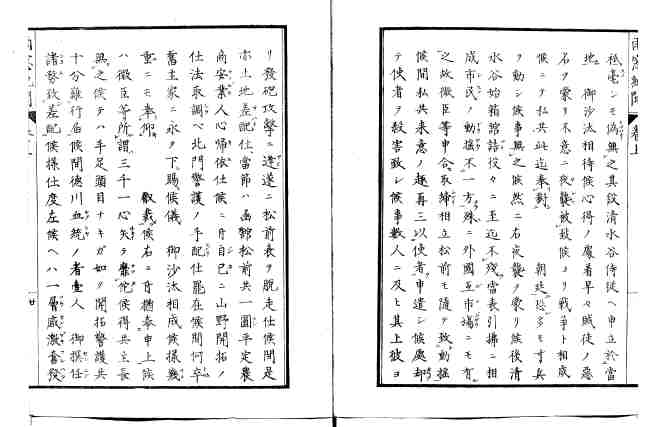 祗毫ンモ偽無之其段清水谷侍従ヘ申立於當
地 御沙汰相待候心得ノ處着早々賊徒ノ惡
名ヲ蒙リ不意ニ夜襲致候ヨリ戦爭ト相成
候ニ付私共此迄奉對 朝廷恐多モ寸兵
ヲ動シ候事無之候然ニ右夜襲ヲ蒙リ候後清
水谷始箱館詰役々ニ至迄不残當表引拂ニ相
成市民ノ動揺不一方殊ニ外國互市場ニモ有
之故徴臣等申合取締相立松前モ随テ致動揺
候間私共来意ノ趣再三以使者申遣シ候處却
テ使者ヲ殺害致シ候事数人ニ及ヒ其上彼ヨ
リ發砲攻撃ニ逢遂ニ松前表ヲ脱走仕候間是
亦土地差配仕當節ハ凾館松前共一圓平定農
商安業人心帰依仕候ニ付自己ニ山野開拓ノ
仕法取調ヘ北門警護ノ手配仕罷在候間何卒
舊主家ニ永ク下賜候儀 御沙汰相成候様幾
重ニモ奉仰 叡裁候右ニ付猶奉申上候
ハ徴臣等所謂三千一心矢テ靡佗候得共主長
無之候テハ手足頭目ナキガ如ク開拓警護共
十分難行届候間徳川血統ノ者壹人 御撰任
諸務致差配候様仕度左候ヘハ一層感激奮發